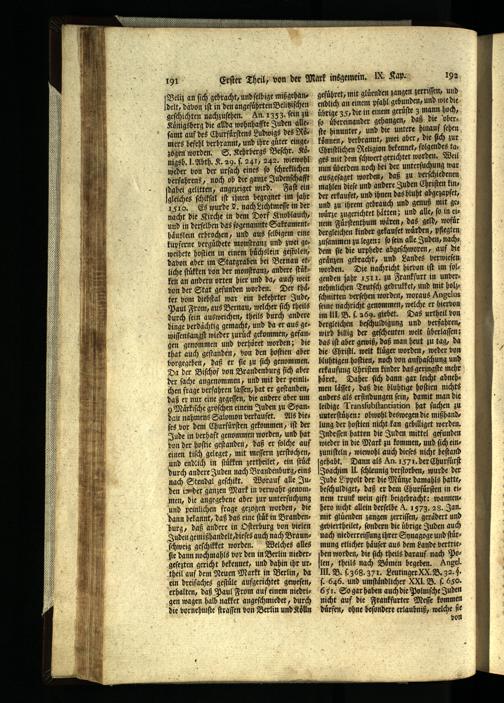 191 Erster Theil, von der Mark insgemein. IX. Kap. 192
Beliz an sich gebracht, und selbige mißgehan-
delt, davon ist in den angeführten Belizischen
geschichten nachzusehen. An. 1353. sein zu
Königsberg die allda wohnhaffte Juden alle-
samt auf des Churfürstens Ludwigs des Rö-
mers befehl verbrannt, und ihre güter einge-
zogen worden. S. Kehrbergs Beschr. Kö-
nigsb. I. Abth. K. 29. S. 241. 242. wiewohl
weder von der ursach eines so schrecklichen
verfahrens, noch ob die ganze Judenschafft
dabei gelitten, angezeiget wird. Fast ein
gleiches schiksal ist ihnen begegnet im jahr
1510. Es wurde nach Lichtmesse in der
nacht die Kirche in dem Dorf Knoblauch,
und in derselben das sogenannte Sakrament-
häuslein erbrochen, und aus selbigem eine
kupferne vergüldete monstranz und zwei ge-
weihete hostien in einem büchslein gestolen,
davon aber im Statgraben bei Bernau et-
liche stükken von der monstranz, andere stük-
ken an andern orten hier und da, auch weit
von der Stat gefunden worden. Der thä-
ter vom diebstal war ein bekehrter Jude,
Paul From, aus Bernau, welcher sich theils
durch sein ausweichen, theils durch andere
dinge verdächtig gemacht, und da er aus ge-
wissensangst wieder zurük gekommen, gefan-
gen genommen und verhöret worden; die
that auch gestanden, von den hostien aber
vorgegeben, daß er sie zu sich genommen.
Da der Bischof von Brandenburg sich aber
der sache angenommen, und mit der peinli-
chen frage verfahren lassen, hat er gestanden,
daß er nur eine gegessen, die andere aber um
9 Märkische groschen einem Juden zu Span-
dau nahmens Salomon verkaufet. Als die-
ses vor dem Churfürsten gekommen, ist der
Jude in verhaft genommen worden, und hat
von der hostie gestanden, daß er solche auf
einen tisch geleget, mit messern zerstochen,
und endlich in stükken zertheilet, ein stük
durch andere Juden nach Brandenburg, eins
nach Stendal geschikt. Worauf alle Ju-
den in der ganzen Mark in verwahr genom-
men, die angegebene aber zur untersuchung
und peinlichen frage gezogen worden, die
dann bekannt, daß das eine stük in Branden-
burg, daß andere in Osterburg von vielen
Juden gemishandelt, dieses auch nach Braun-
schweig geschikket worden. Welches alles
sie dann nochmahls vor den in Berlin nieder-
gesezten gericht bekennet, und dahin ihr ur-
theil auf dem Neuen Markt in Berlin, da
ein dreifaches gesüle aufgerichtet gewesen,
erhalten, daß Paul From auf einem niedri-
gen wagen halb nakket angeschmiedet, durch
die vornehmste strassen von Berlin und Kölln
geführet, mit glüenden zangen zerrissen, und
endlich an einem pfahl gebunden, und wie die
übrige 35, die in einem gerüste 3 mann hoch,
so übereinander gehangen, daß die ober-
ste hinunter, und die untere hinauf sehen
können, verbrannt, zwei aber, die sich zur
Christlichen Religion bekennet, folgendes ta-
ges mit dem schwert gerichtet worden. Weil
nun überdem noch bei der untersuchung war
ausgesaget worden, daß zu verschiedenen
mahlen diese und andere Juden Christen kin-
der erkaufet, und ihnen das bluht abgezapfet,
und zu ihrem gebrauch und genuß mit ge-
würze zugerichtet hätten; und alle, so in ei-
nem Fürstenthum wären, das geld, wofür
dergleichen kinder gekaufet würden, pflegten
zusammen zu legen: so sein alle Juden, nach-
dem sie die urphede abgeschworen, auf die
gränzen gebracht, und Landes verwiesen
worden. Die nachricht hievon ist im fol-
genden jahr 1511. zu Frankfurt in unver-
nehmlichen Teutsch gedrukket, und mit holz-
schnitten versehen worden, woraus Angelus
seine nachricht genommen, welche er hiervon
im III. B. f. 269. giebet. Das urtheil von
dergleichen beschuldigung und verfahren,
wird billig der gescheuten welt überlassen:
das ist aber gewiß, daß man heut zu tag, da
die Christl. welt klüger worden, weder von
bluhtigen hostien, noch von anfschaffung und
erkaufung Christen kinder das geringste mehr
höret. Daher sich dann gar leicht abneh-
men lässet, daß die bluhtige hostien nichts
anders als erfindungen sein, damit man die
leidige Transsubstantiation hat suchen zu
unterstüzen: obwohl deswegen die mißhand-
lung der hostien nicht kan gebilliget werden.
Indessen hatten die Juden mittel gefunden
wieder in die Mark zu kommen, und sich ein-
zunisteln, wiewohl auch dieses nicht bestand
gehabt. Dann als An. 1571. der Churfürst
Joachim II. schleunig verstorben, wurde der
Jude Lippolt der die Münze damahls hatte,
beschuldiget, daß er dem Churfürsten in ei-
nem trunk wein gift beigebracht: dannen-
hero nicht allein derselbe A. 1573. 28. Jan.
mit glüenden zangen zerrissen, gerädert und
geviertheilet, sondern die übrige Juden auch
nach niederreissung ihrer Synagoge und stür-
mung etlicher häuser aus dem Lande vertrie-
ben worden, die sich theils darauf nach Po-
len, theils nach Bömen begeben. Angel.
III. B. f. 368. 371. Leutinger XX. B. 32. §.
f. 646. und umständlicher XXI. B. f. 650.
651. So gar haben auch die Polnische Juden
nicht auf die Frankfurter Messe kommen
dürfen, ohne besondere erlaubniß, welche sie
von